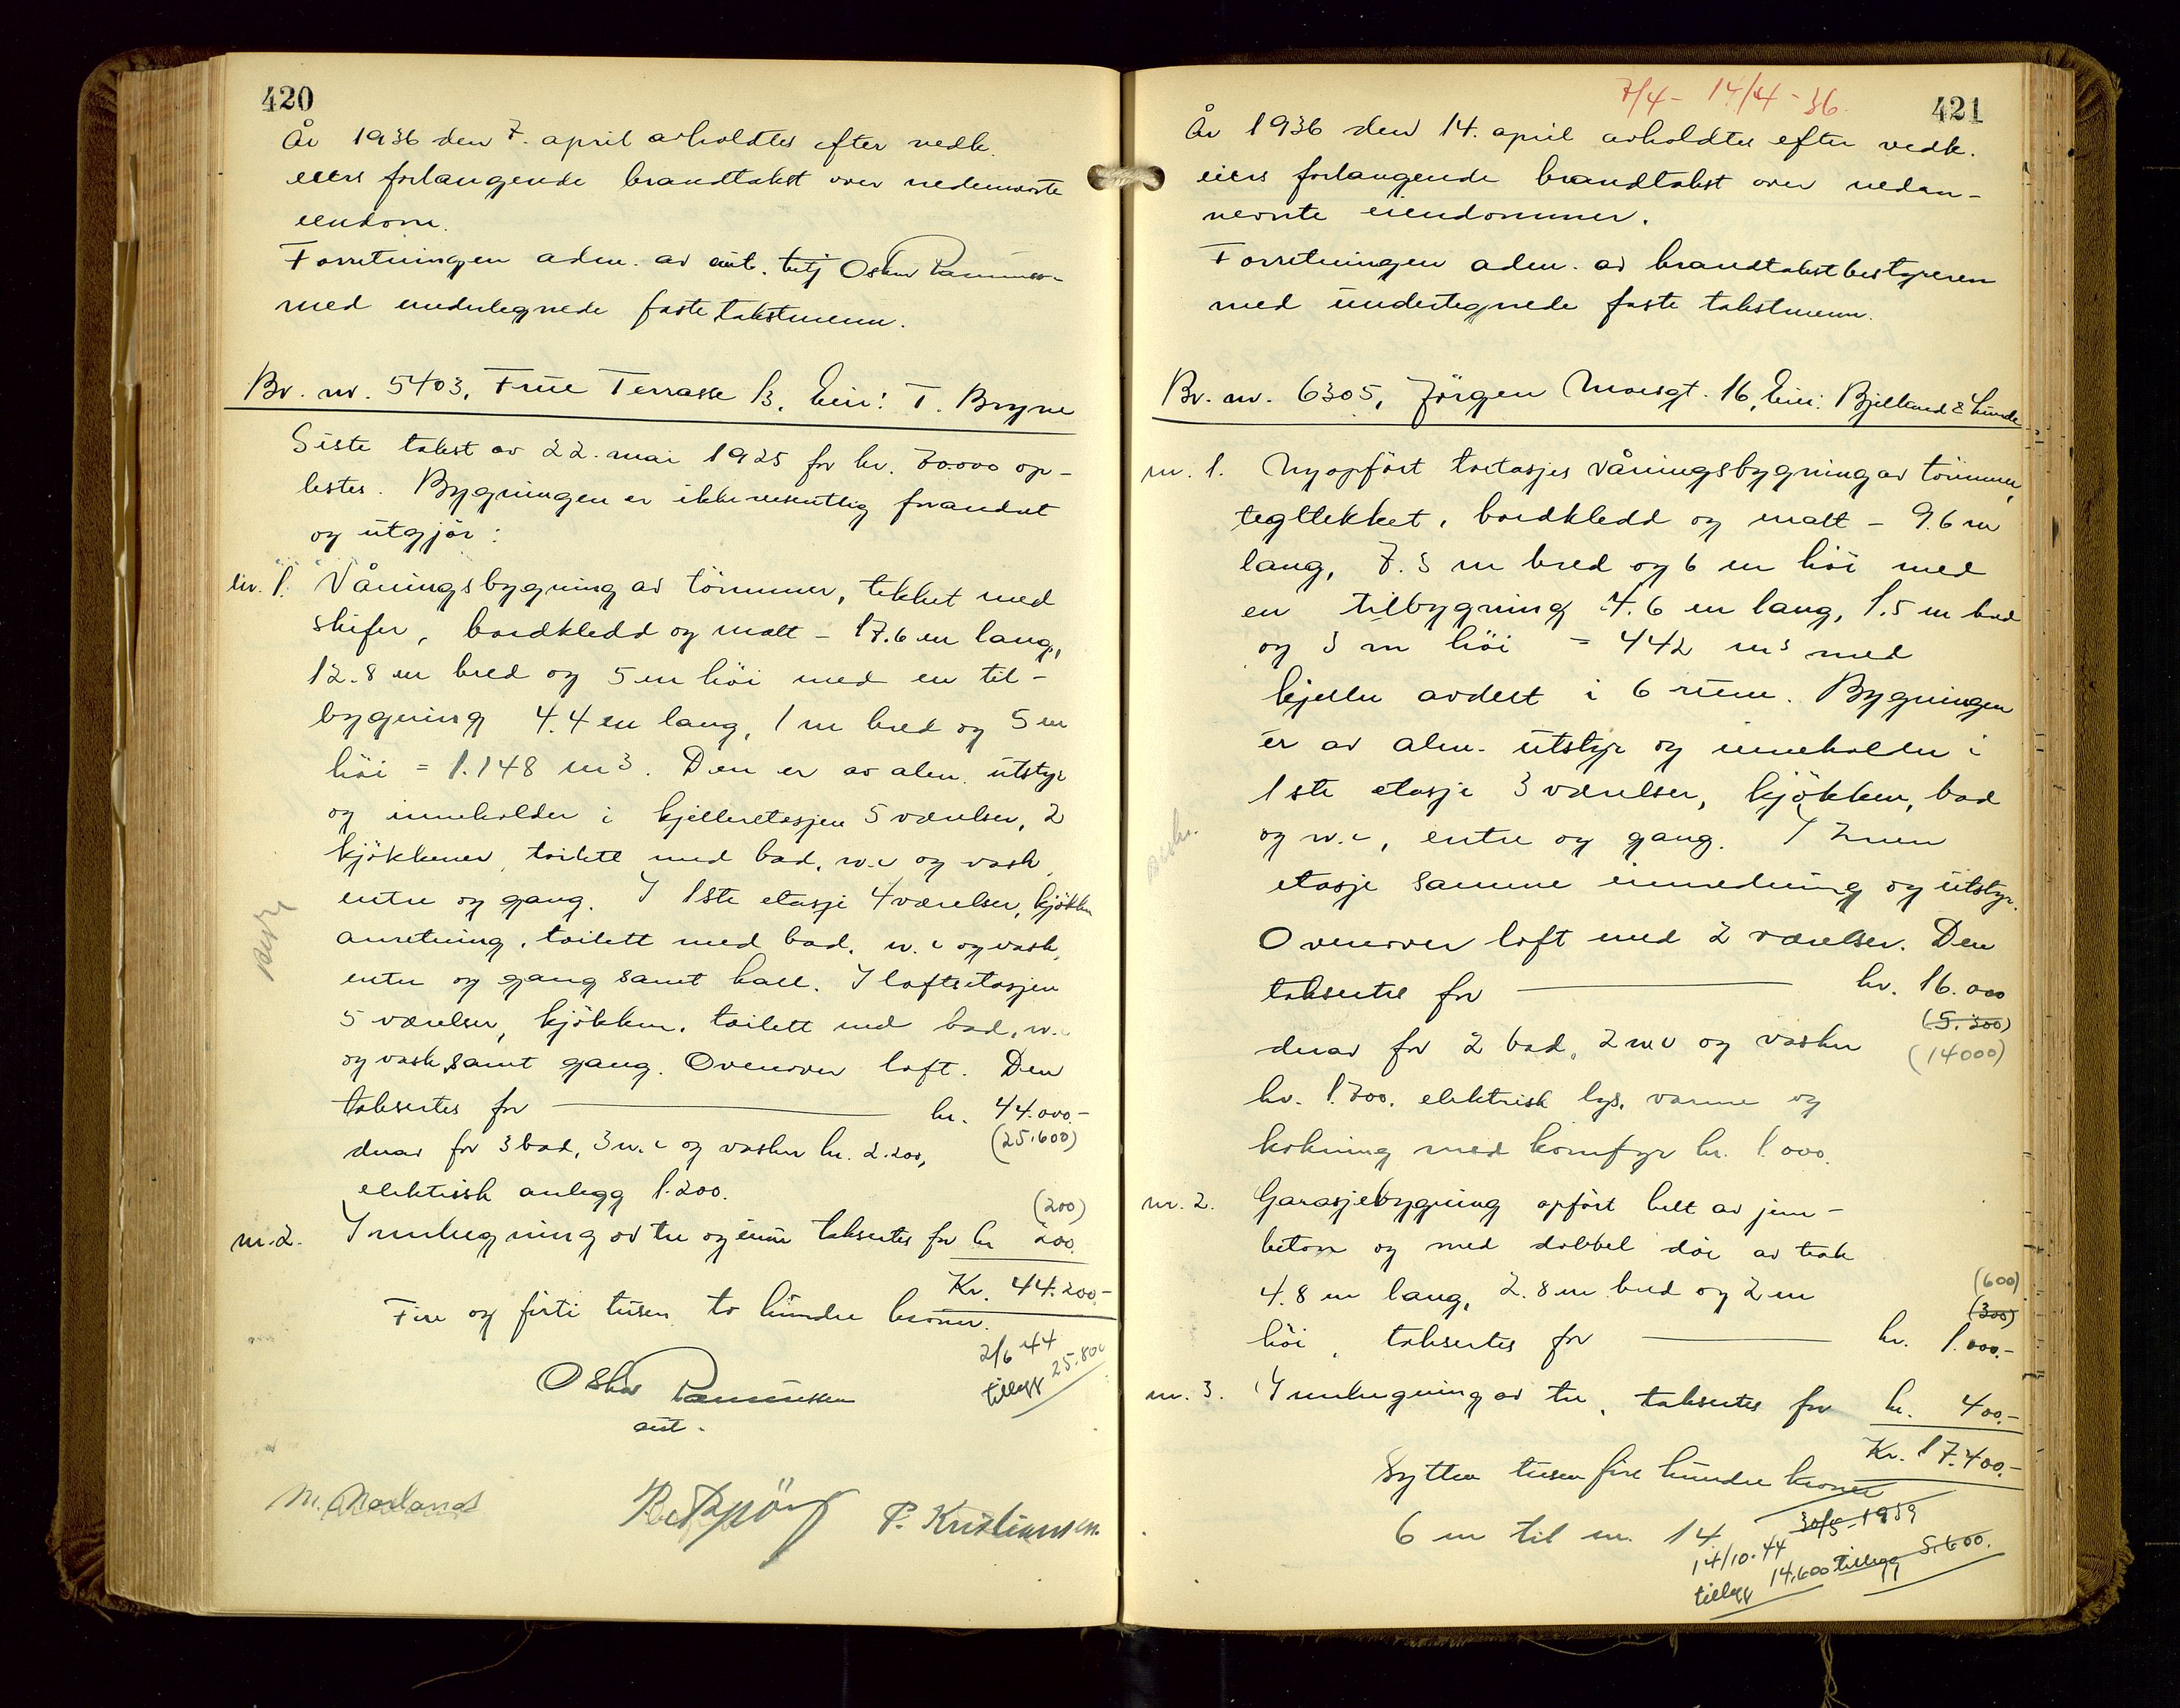 420
År 1936 den 7. april avholdtes efter vedk.
eiers forlangende brandtakst over nedennevnte
eiendom.
Forretningen adm. av aut. betj Oskar Rasmussen
med undertegnede faste takstmenn.
Br. nr. 5403, Frue Terrasse 13, Eier: T. Bryne
Siste takst av 22. mai 1925 for kr. 70.000 op-
lestes. Bygningen er ikke vesentlig forandret
og utgjør:
nr. 1. Våningsbygning av tømmer, tekket med
skifer, bordkledd og malt - 17.6 m lang,
12.8 m bred og 5 m høi med en til-
bygning 4.4 m lang, 1 m bred og 5 m
høi = 1.148 m3. Den er av alm. utstyr
og inneholder i kjelleretasjen 5 værelser, 2
kjøkkener, toilett med bad, w.c og vask,
entre og gang. I 1ste etasje 4 værelser, kjøkken
anretning, toilett med bad, w.c og vask,
entre og gang samt hall. I loftsetasjen
5 værelser, kjøkken, toilett med bad, w.c
og vask samt gang. Ovenover loft. Den
taksertes for kr. 44.000.-
(25.600)
derav for 3 bad, 3 w.c og vasker kr. 2.200,
elektrisk anlegg 1.200.
(200)
nr. 2. Innhegning av tre og mur taksertes for kr 200.
Kr. 44.200.-
Fire og firti tusen to hundre kroner.
2/6 44
tillegg 25.800
Oskar Rasmussen
aut.
M. Norland
P. Kristiansen
7/4 - 14/4 - 36.
421
År 1936 den 14. april avholdtes efter vedk.
eiers forlangende brandtakst over nedan-
nevnte eiendommer.
Forretningen adm. av brandtakstbestyreren
med undertegnede faste takstmenn.
Br. nr. 6305, Jørgen Moesgt. 16, Eier: Bjelland & Lunde
nr. 1. Nyopført toetasjes våningsbygning av tømmer,
tegltekket, bordkledd og malt - 9.6 m
lang, 7.3 m bred og 6 m høi med
en tilbygning 4.6 m lang, 1.5 m bred
og 3 m høi = 442 m3 med
kjeller avdelt i 6 rum. Bygningen
er av alm. utstyr og inneholder i
1ste etasje 3 værelser, kjøkken, bad
og w.c, entre og gang. I 2nen
etasje samme innredning og utstyr.
Ovenover loft med 2 værelser. Den
taksertes for kr. 16.000
(5.300)
(14000)
derav for 2 bad, 2 w.c og vasker
kr. 1.700. elektrisk lys, varme og
kokning med komfyr kr. 1.000.
nr. 2. Garasjebygning opført helt av jern-
beton og med dobbel dør av teak
4.8 m lang, 2.8 m bred og 2 m
(600)
(300)
høi, taksertes for kr. 1.000.-
nr. 3. Innhegning av tre, taksertes for kr. 400.-
Kr. 17.400.-
Sytten tusen fire hundre kroner
6 m til nr. 14.
30/5-1939
tillegg 5.600.
14/10.44
tillegg 14.600